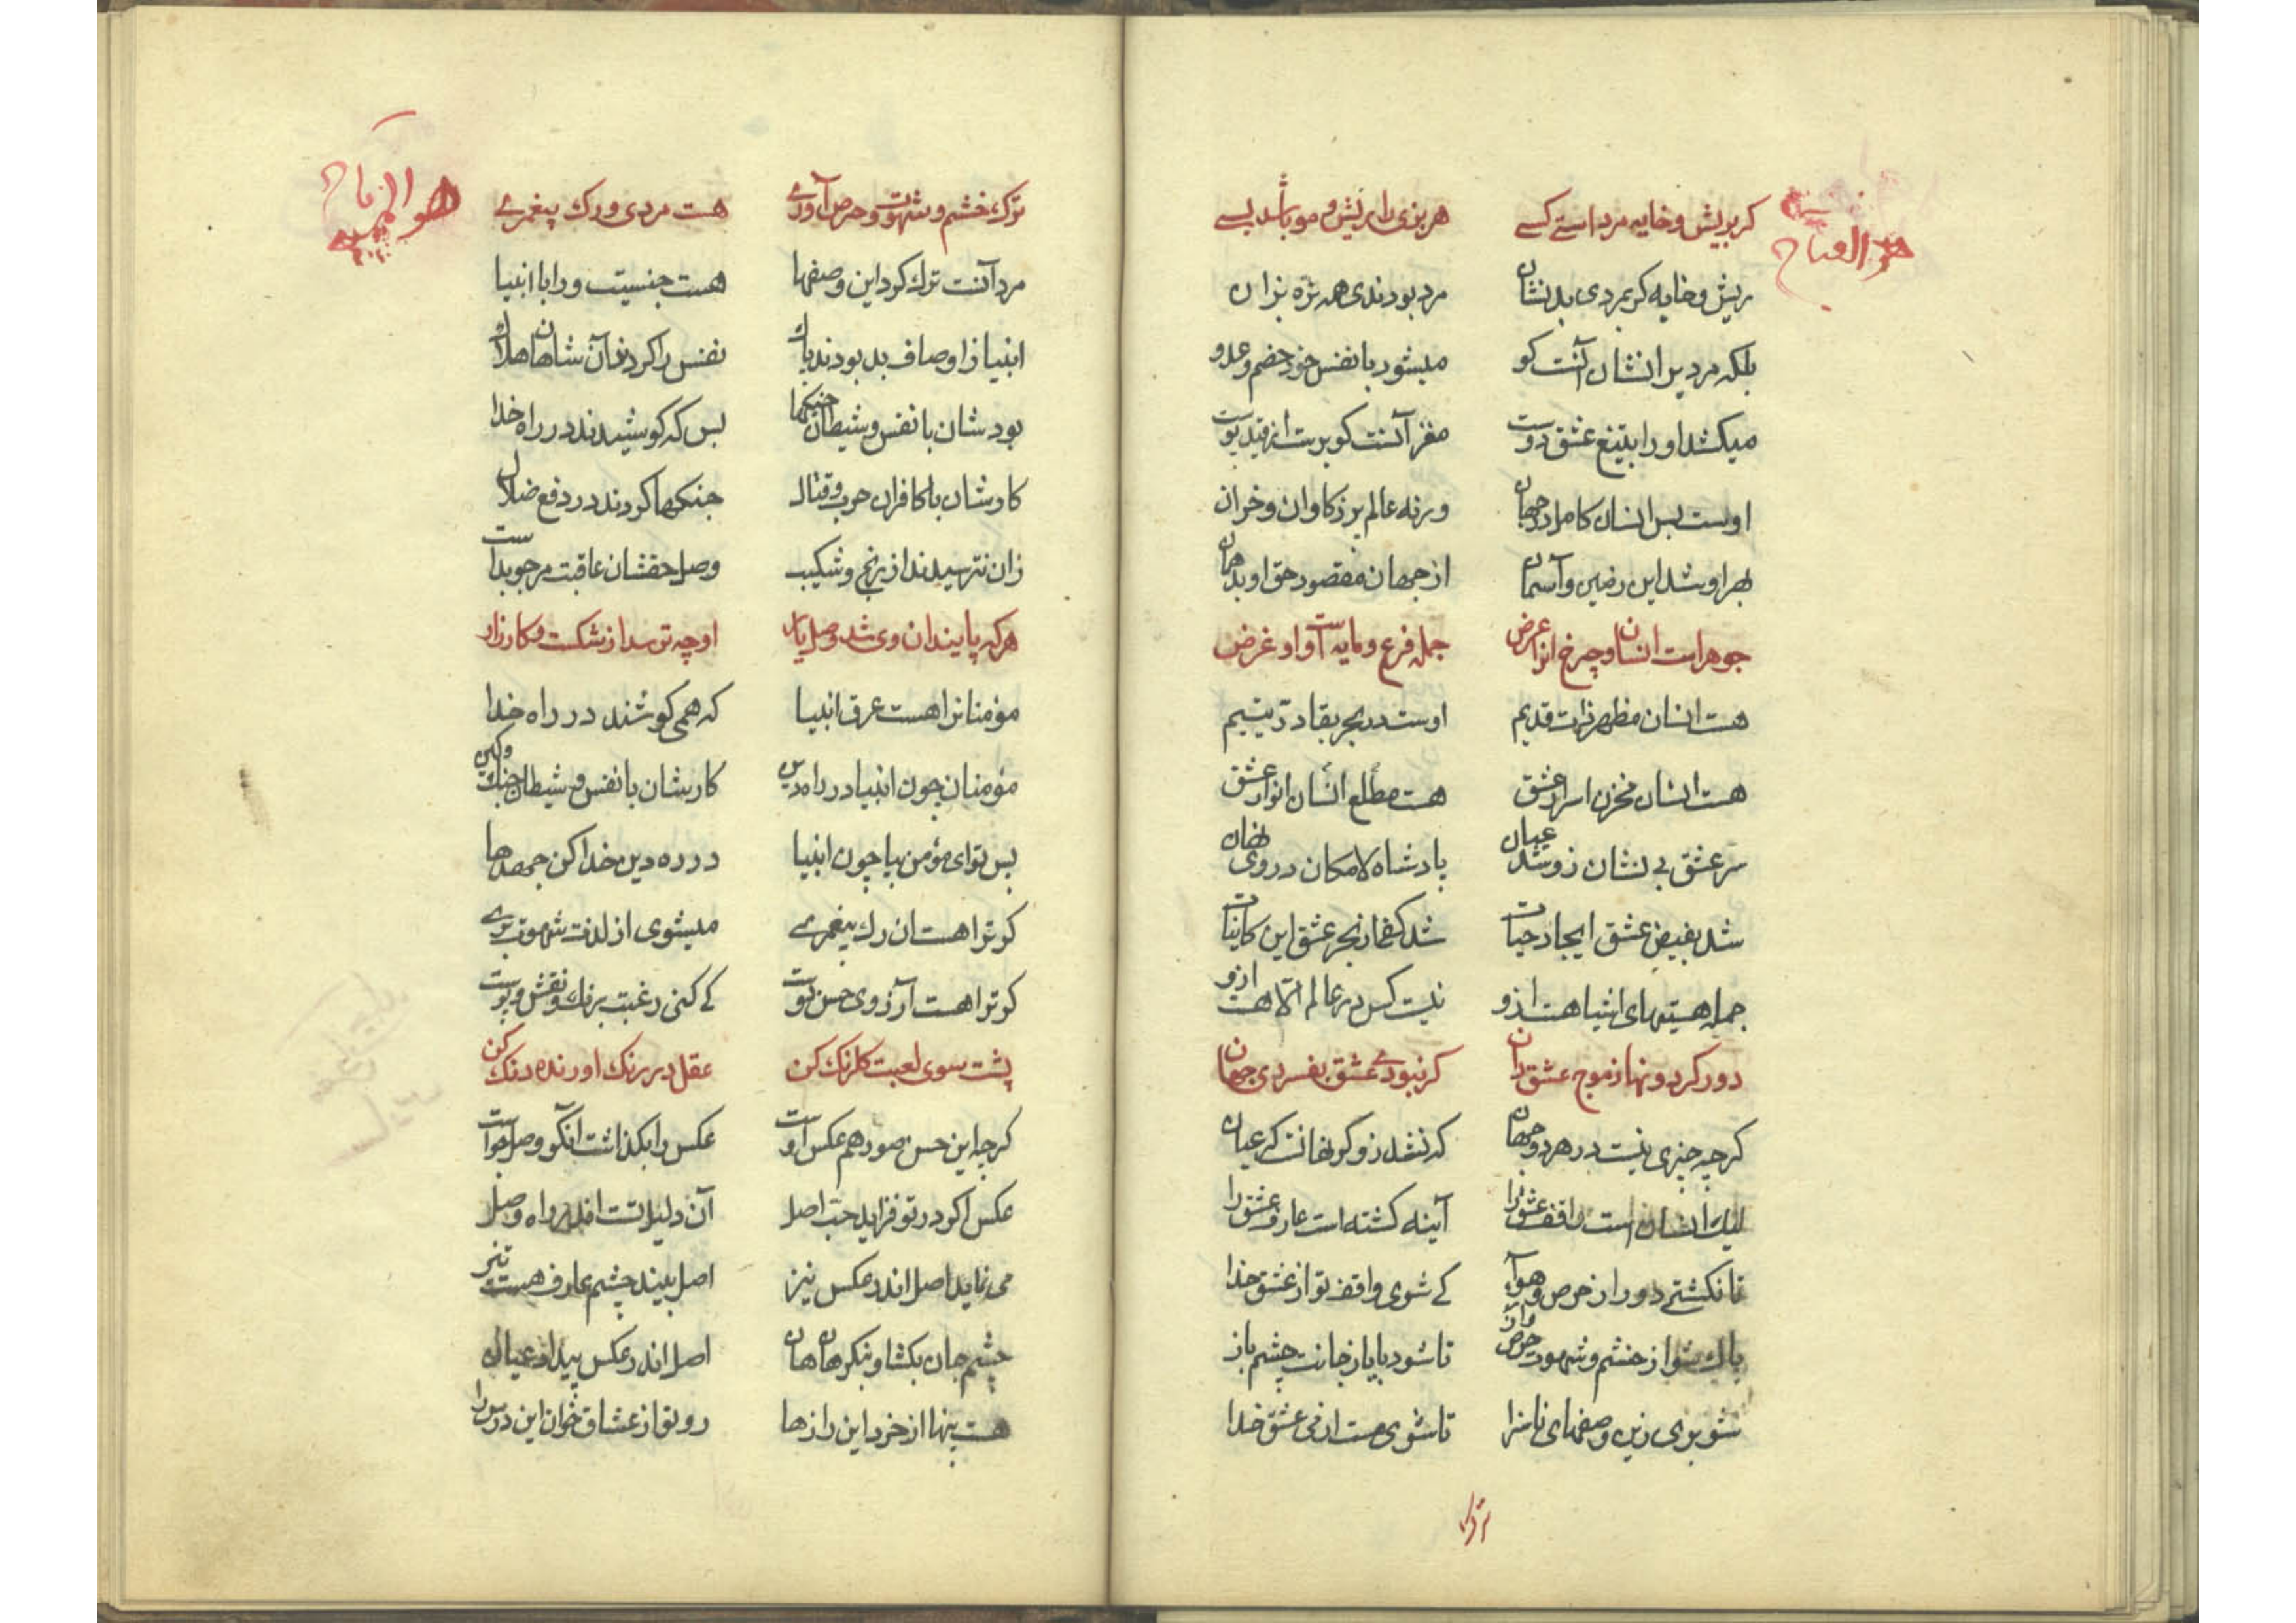 هو الفتاح
كر بريش و خايه مرد استى كسى هر بزى را ريش و مو باشد بسى
ريش و خايه كر بمردى بد نشان مرد بودندى همه نره بزان
بلكه مرديرا نشان آنست كو ميشود با نفس خود خصم و عدو
ميكشد او را بتيغ عشق دوست مغز آنست كو برست از قيد پوست
اوست بس انسان كامل در جهان ورنه عالم پر ز كاوان و خران
بهر او شد اين زمين و آسمان از جهان مقصود حق او بد همان
جوهر است انسان و چرخ او را عرض جمله فرع و مايه است او او غرض
هست انسان مظهر ذات قديم اوست در بحر بقا در يتيم
هست انسان مخزن اسرار عشق هست مطلع انسان انوار عشق
سر عشق بى نشان زو شد عيان پادشاه لامكان در وى نهان
شد بفيض عشق ايجاد حيات شد كفى از بحر عشق اين كاينات
جمله هستيهاى اشيا هست ازو نيست كس در عالم الا هست ازو
دور كردونها ز موج عشق دان كر نبودى عشق بفسردى جهان
كرچه چيزى نيست در هر دو جهان كه نشد زو كر نهانست كر عيان
ليك انسان است واقف عشق را آينه كشته است عارف عشق را
تا نكشتى دور از حرص و هوا كى شوى واقف تو از عشق خدا
پاك شو از خشم و شهوت حرص و آز تا شود بايار جانت چشم باز
شو برى زين وصفهاى ناسزا تا شوى مست از مى عشق خدا
ترك
هو
ترك خشم و شهوت و حرص آورى هست مردى و رك پيغمبرى
مرد آنست ترك كرد اين وصفها هست جنسيت ورا با انبيا
انبيا ز اوصاف بد بودند پاك نفس را كردند آن شاهان هلاك
بود شان با نفس و شيطان جنكها بس كه كوشيدند در راه خدا
كارشان با كافران حرب و قتال جنكها كردند در دفع ضلال
زان نترسيدند از رنج و شكيب وصل حقشان عاقبت مرجو بدست
هركه پايندان وى شد وصل يار او چه ترسد از شكست و كارزار
مؤمنانرا هست عرق انبيا كه همى كوشند در راه خدا
مؤمنان چون انبيا در راه دين كارشان با نفس و شيطان جنك و كين
بس تو اى مؤمن بيا چون انبيا در ره دين خدا كن جهدها
كر ترا هست آن رك پيغمبرى ميشوى از لذت شهوت برى
كر ترا هست آرزوى حسن دوست كى كنى رغبت برنك و نقش و پوست
پشت سوى لعبت كلرنك كن عقل در رنك آورنده دنك كن
كرچه اين حسن صور هم عكس اوست عكس را بكذاشت آنكو وصل جوست
عكس اكر در تو فزايد حب اصل آن دليلست اندر راه وصل
مى نمايد اصل اندر عكس نيز اصل بيند چشم عارف هست تيز
چشم جان بكشا و بنكر هان هان اصل اندر عكس پيدا و عيان
هست پنهان از خرد اين رازها رو تو از عشاق خوان اين درس را